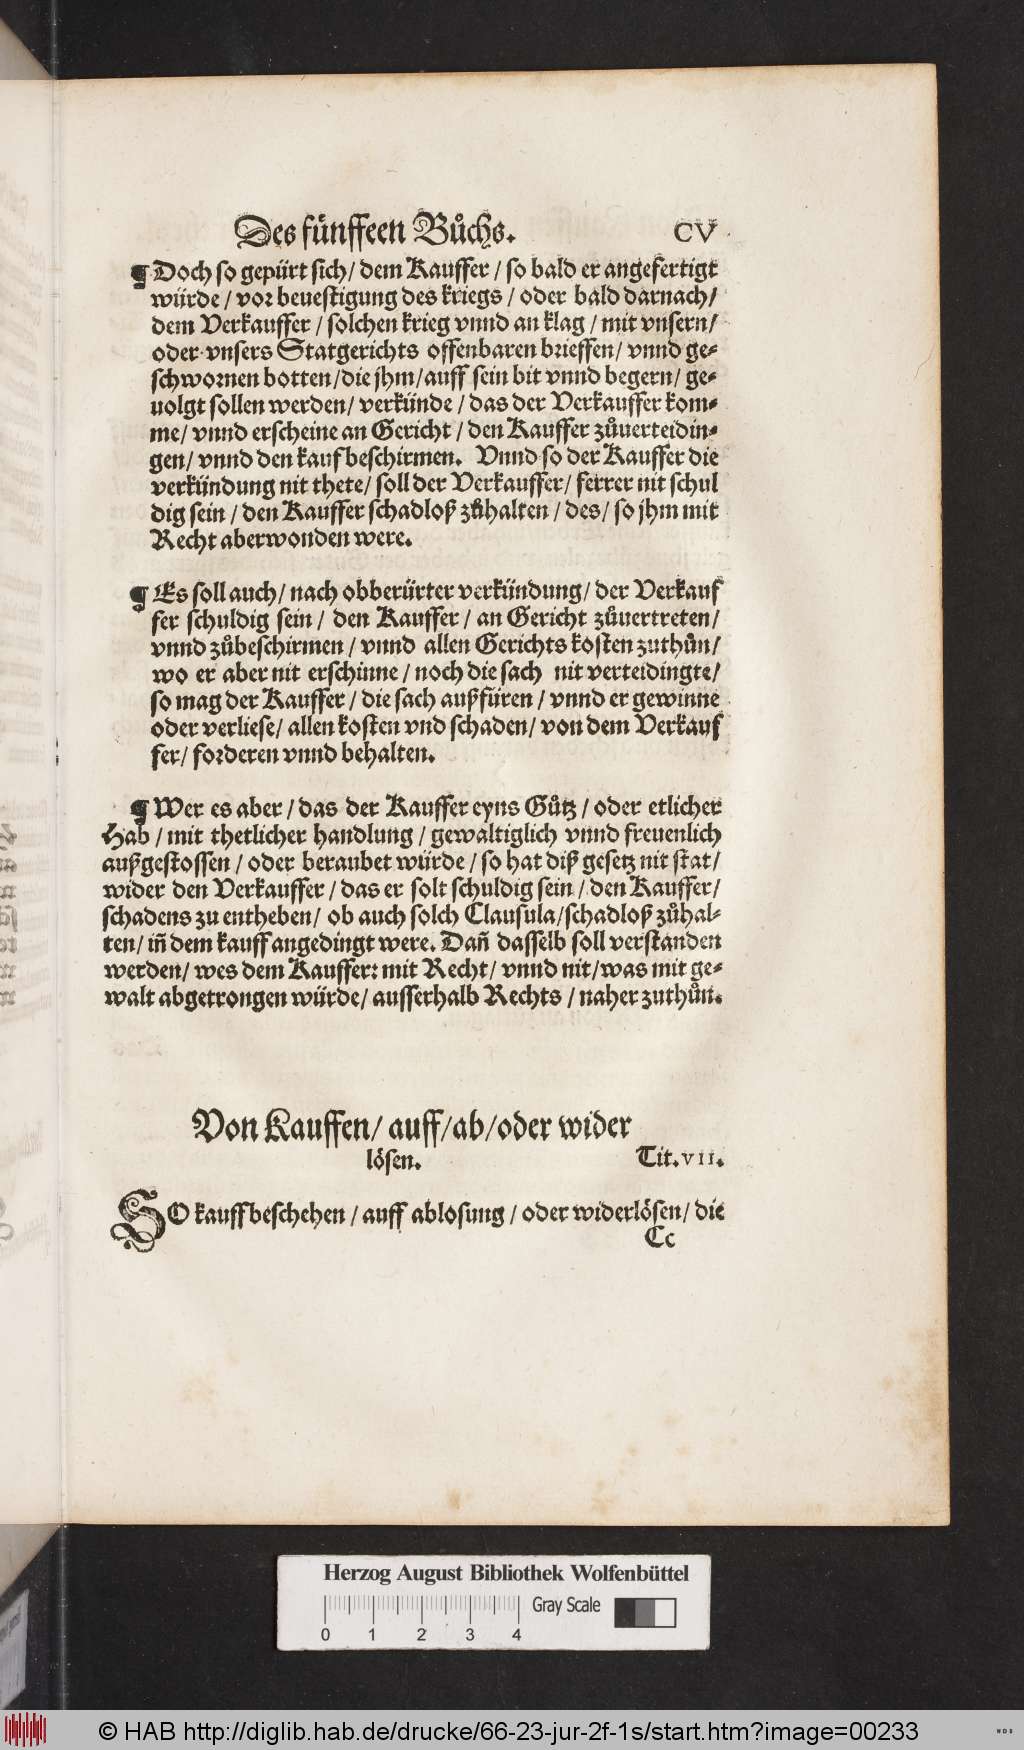 Des fünffeen Bůchs. CV
¶ Doch so gepürt sich/ dem Kauffer / so bald er angefertigt
würde / vor beuestigung des kriegs / oder bald darnach/
dem Verkauffer / solchen krieg vnnd an klag / mit vnsern/
oder vnsers Statgerichts offenbaren brieffen/ vnnd ge⸗
schwornen botten/die jhm/auff sein bit vnnd begern/ ge⸗
uolgt sollen werden/ verkünde / das der Verkauffer kom⸗
me/ vnnd erscheine an Gericht / den Kauffer zůuerteidin⸗
gen/ vnnd den kauf beschirmen. Vnnd so der Kauffer die
verkündung nit thete/ soll der Verkauffer/ ferrer nit schul
dig sein / den Kauffer schadloß zůhalten / des/ so jhm mit
Recht aberwonden were.
¶ Es soll auch/ nach obberürter verkündung/ der Verkauf
fer schuldig sein / den Kauffer / an Gericht zůuertreten/
vnnd zůbeschirmen / vnnd allen Gerichts kosten zuthůn/
wo er aber nit erschinne / noch die sach nit verteidingte/
so mag der Kauffer / die sach außfüren / vnnd er gewinne
oder verliese/ allen kosten vnd schaden/ von dem Verkauf
fer/ forderen vnnd behalten.
¶ Wer es aber / das der Kauffer eyns Gůtz / oder etlicher
Hab / mit thetlicher handlung / gewaltiglich vnnd freuenlich
außgestossen / oder beraubet würde / so hat diß gesetz nit stat/
wider den Verkauffer / das er solt schuldig sein / den Kauffer/
schadens zu entheben/ ob auch solch Clausula/schadloß zůhal⸗
ten/ iñ dem kauff angedingt were. Dañ dasselb soll verstanden
werden/ wes dem Kauffer: mit Recht/ vnnd nit/was mit ge⸗
walt abgetrongen würde/ ausserhalb Rechts / naher zuthůn.
Von Kauffen/ auff/ab/oder wider
lösen. Tit. VII.
SO kauff beschehen / auff ablosung / oder widerlösen/ die
Cc
Herzog August Bibliothek Wolfenbüttel
Gray Scale
0 1 2 3 4
© HAB http://diglib.hab.de/drucke/66-23-jur-2f-1s/start.htm?image=00233